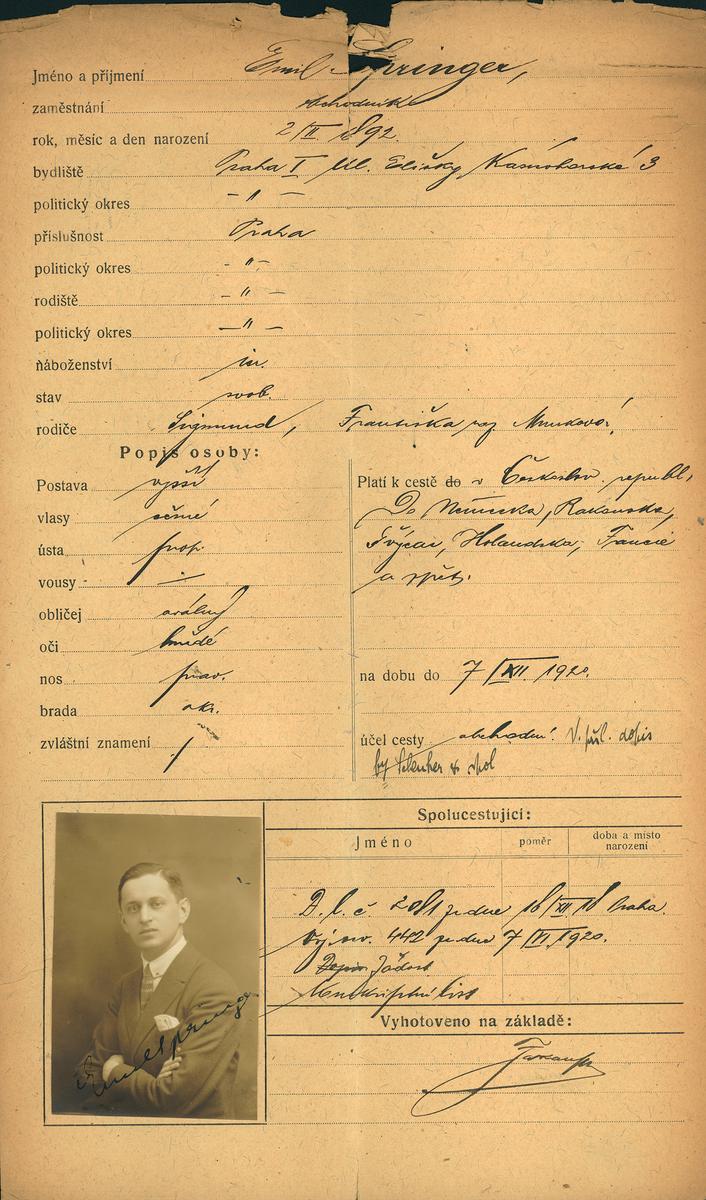 Jméno a příjmení Emil Springer,
zaměstnání obchodník
rok, měsíc a den narození 2/II 1892.
bydliště Praha I Ul. Elišky Krásnohorské 3
politický okres – " –
příslušnost Praha
politický okres – " –
rodiště – " –
politický okres – " –
náboženství isr.
stav svob.
rodiče Sigmund, Františka roz.
Popis osoby:
Postava vyšší
vlasy černé
ústa prop.
vousy - –
obličej oválný
oči hnědé
nos prav.
brada okr.
zvláštní znamení /
Platí k cestě do v Českoslov. republ.,
Do Německa, Rakouska,
Švýcar, Holandska, Francie
a zpět.
na dobu do 7/XII. 1920.
účel cesty obchodní. V. příl. dopis
fy Schenker & spol
Spolucestující:
Jméno poměr doba a místo narození
D. l. č. 2081 ze dne 18/XII 18 Praha.
442 ze dne 7/VI. 1920.
Dopis Žádost
Konskripční list
Vyhotoveno na základě:
Emil Springer